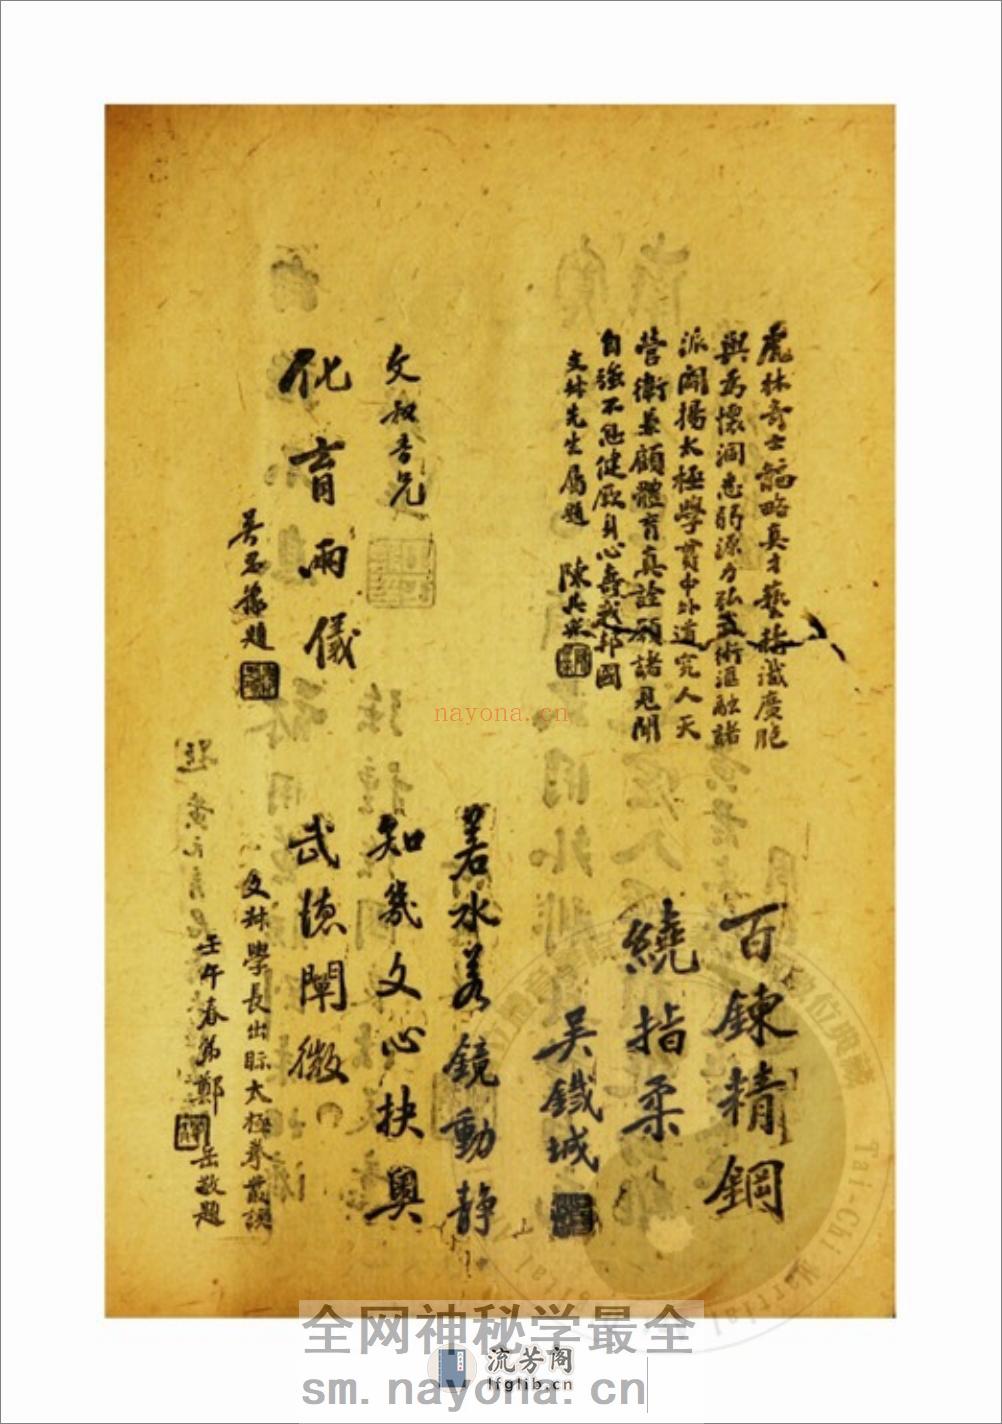 虎林奇士韜略真才藝精識廣胞
與為懷洞悉弱源力弘武術滙融諸
派闡揚太極學貫中外道究人天
營衛兼顧體育真詮願諸見聞
自強不息健厥身心壽越邦國
文叔先生屬題 陳
百鍊精鋼
繞指柔
吳鐵城
文叔吾兄
化育兩儀
題
若水若鏡動靜
知幾文心扶輿
武德闡微
文叔學長出示太極拳叢談
壬午春弟鄭岳敬題
nayona.cn
Tai-Chi Martial
全网神秘学最全
流芳阁
lfglib.cn
sm.nayona.cn